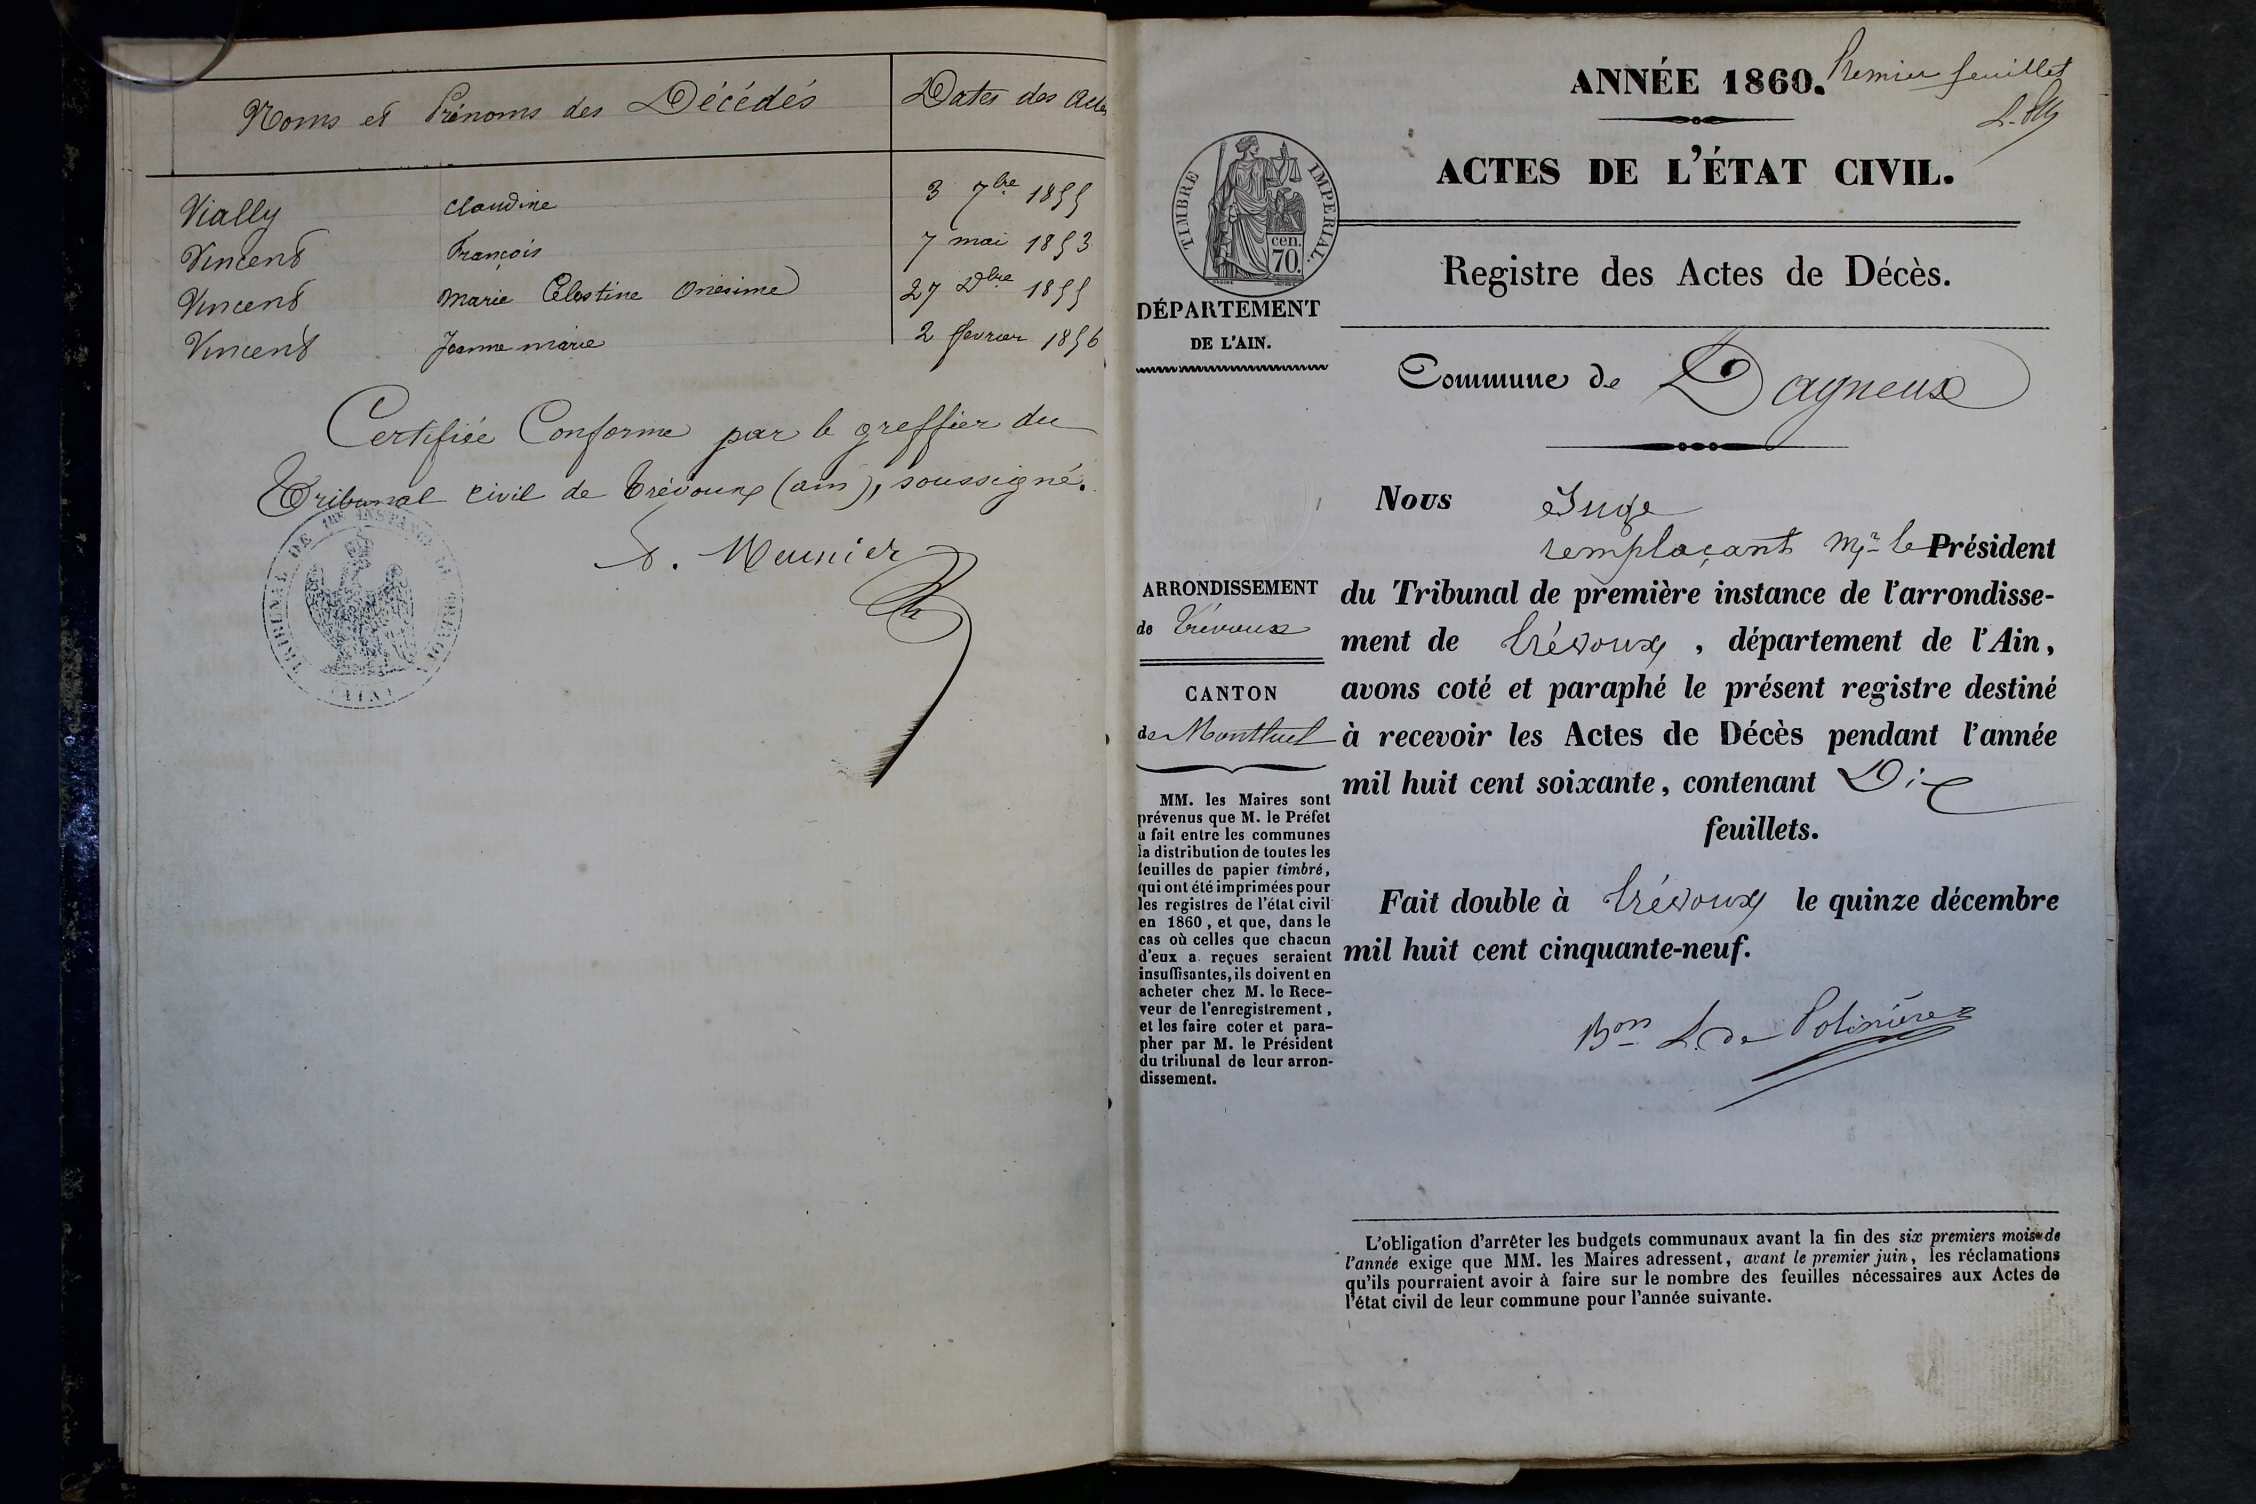 Noms et Prénoms des Décédés
Dates des actes
Vially Claudine 3 7bre 1855
Vincent François 7 mai 1853
Vincent Marie Célestine Onésime 27 Dbre 1855
Vincent Jeanne marie 2 février 1856
Certifiée Conforme par le greffier du
Tribunal civil de Trévoux (ain), soussigné.
TRIBUNAL DE 1RE INSTANCE DE TRÉVOUX (AIN)
Meunier
ANNÉE 1860.
Premier feuillet
ACTES DE L'ÉTAT CIVIL.
TIMBRE IMPERIAL.
cen.
70.
Registre des Actes de Décès.
DÉPARTEMENT
DE L'AIN.
Commune de Dagneux
Nous Juge
remplaçant Mr le Président
du Tribunal de première instance de l'arrondisse-
ment de Trévoux, département de l'Ain,
avons coté et paraphé le présent registre destiné
à recevoir les Actes de Décès pendant l'année
mil huit cent soixante, contenant Dix
feuillets.
Fait double à Trévoux le quinze décembre
mil huit cent cinquante-neuf.
Bon L. de Polinière
ARRONDISSEMENT
de Trévoux
CANTON
de Montluel
MM. les Maires sont
prévenus que M. le Préfet
a fait entre les communes
la distribution de toutes les
feuilles de papier timbré,
qui ont été imprimées pour
les registres de l'état civil
en 1860, et que, dans le
cas où celles que chacun
d'eux a reçues seraient
insuffisantes, ils doivent en
acheter chez M. le Rece-
veur de l'enregistrement,
et les faire coter et para-
pher par M. le Président
du tribunal de leur arron-
dissement.
L'obligation d'arrêter les budgets communaux avant la fin des six premiers mois de
l'année exige que MM. les Maires adressent, avant le premier juin, les réclamations
qu'ils pourraient avoir à faire sur le nombre des feuilles nécessaires aux Actes de
l'état civil de leur commune pour l'année suivante.